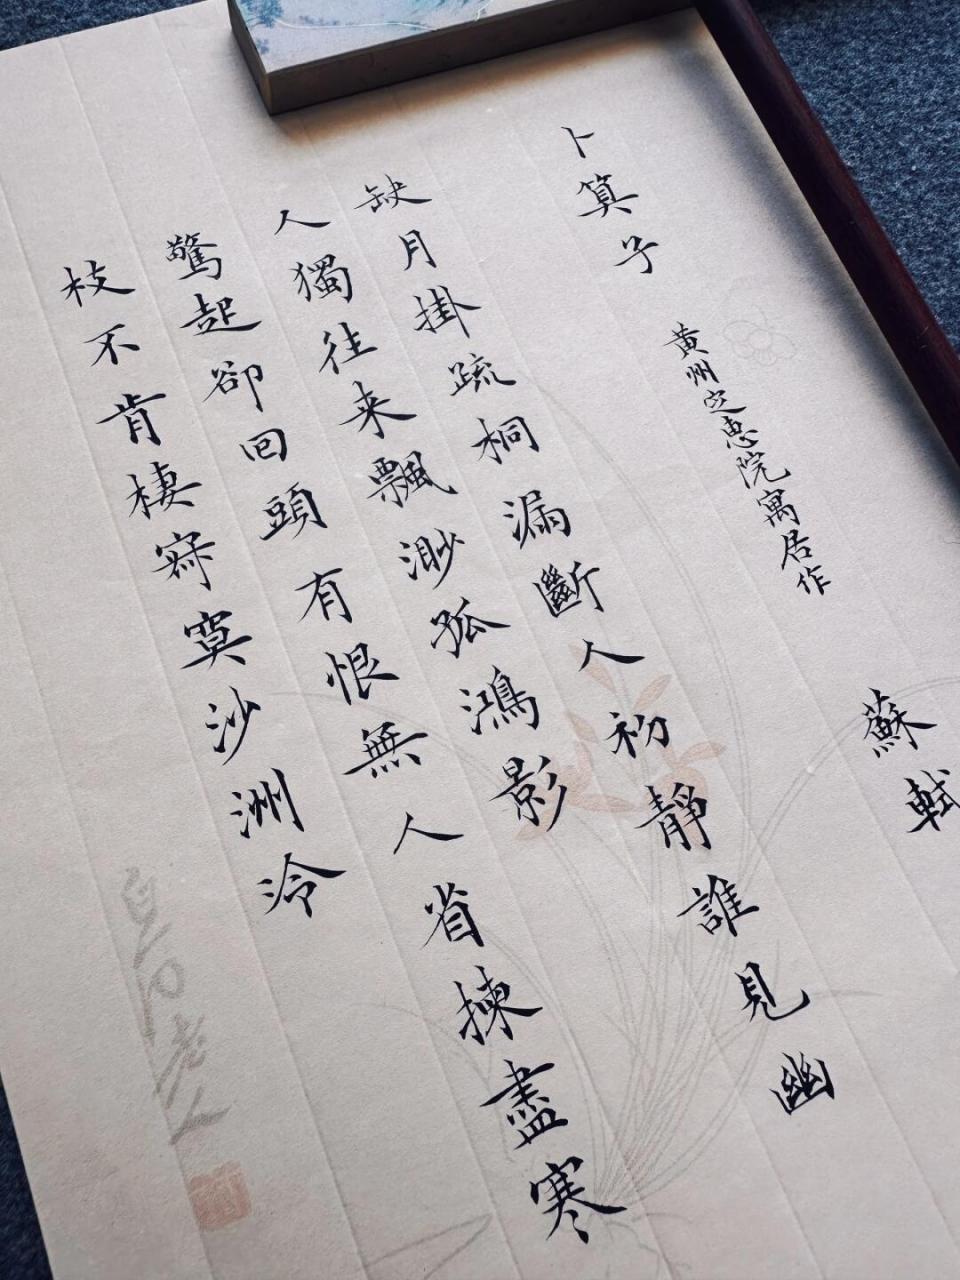 卜算子 黄州定惠院寓居作 蘇軾
缺月掛疏桐漏斷人初靜誰見幽
人獨往来飄渺孤鴻影
驚起卻回頭有恨無人省揀盡寒
枝不肯棲寂寞沙洲冷
白石老人